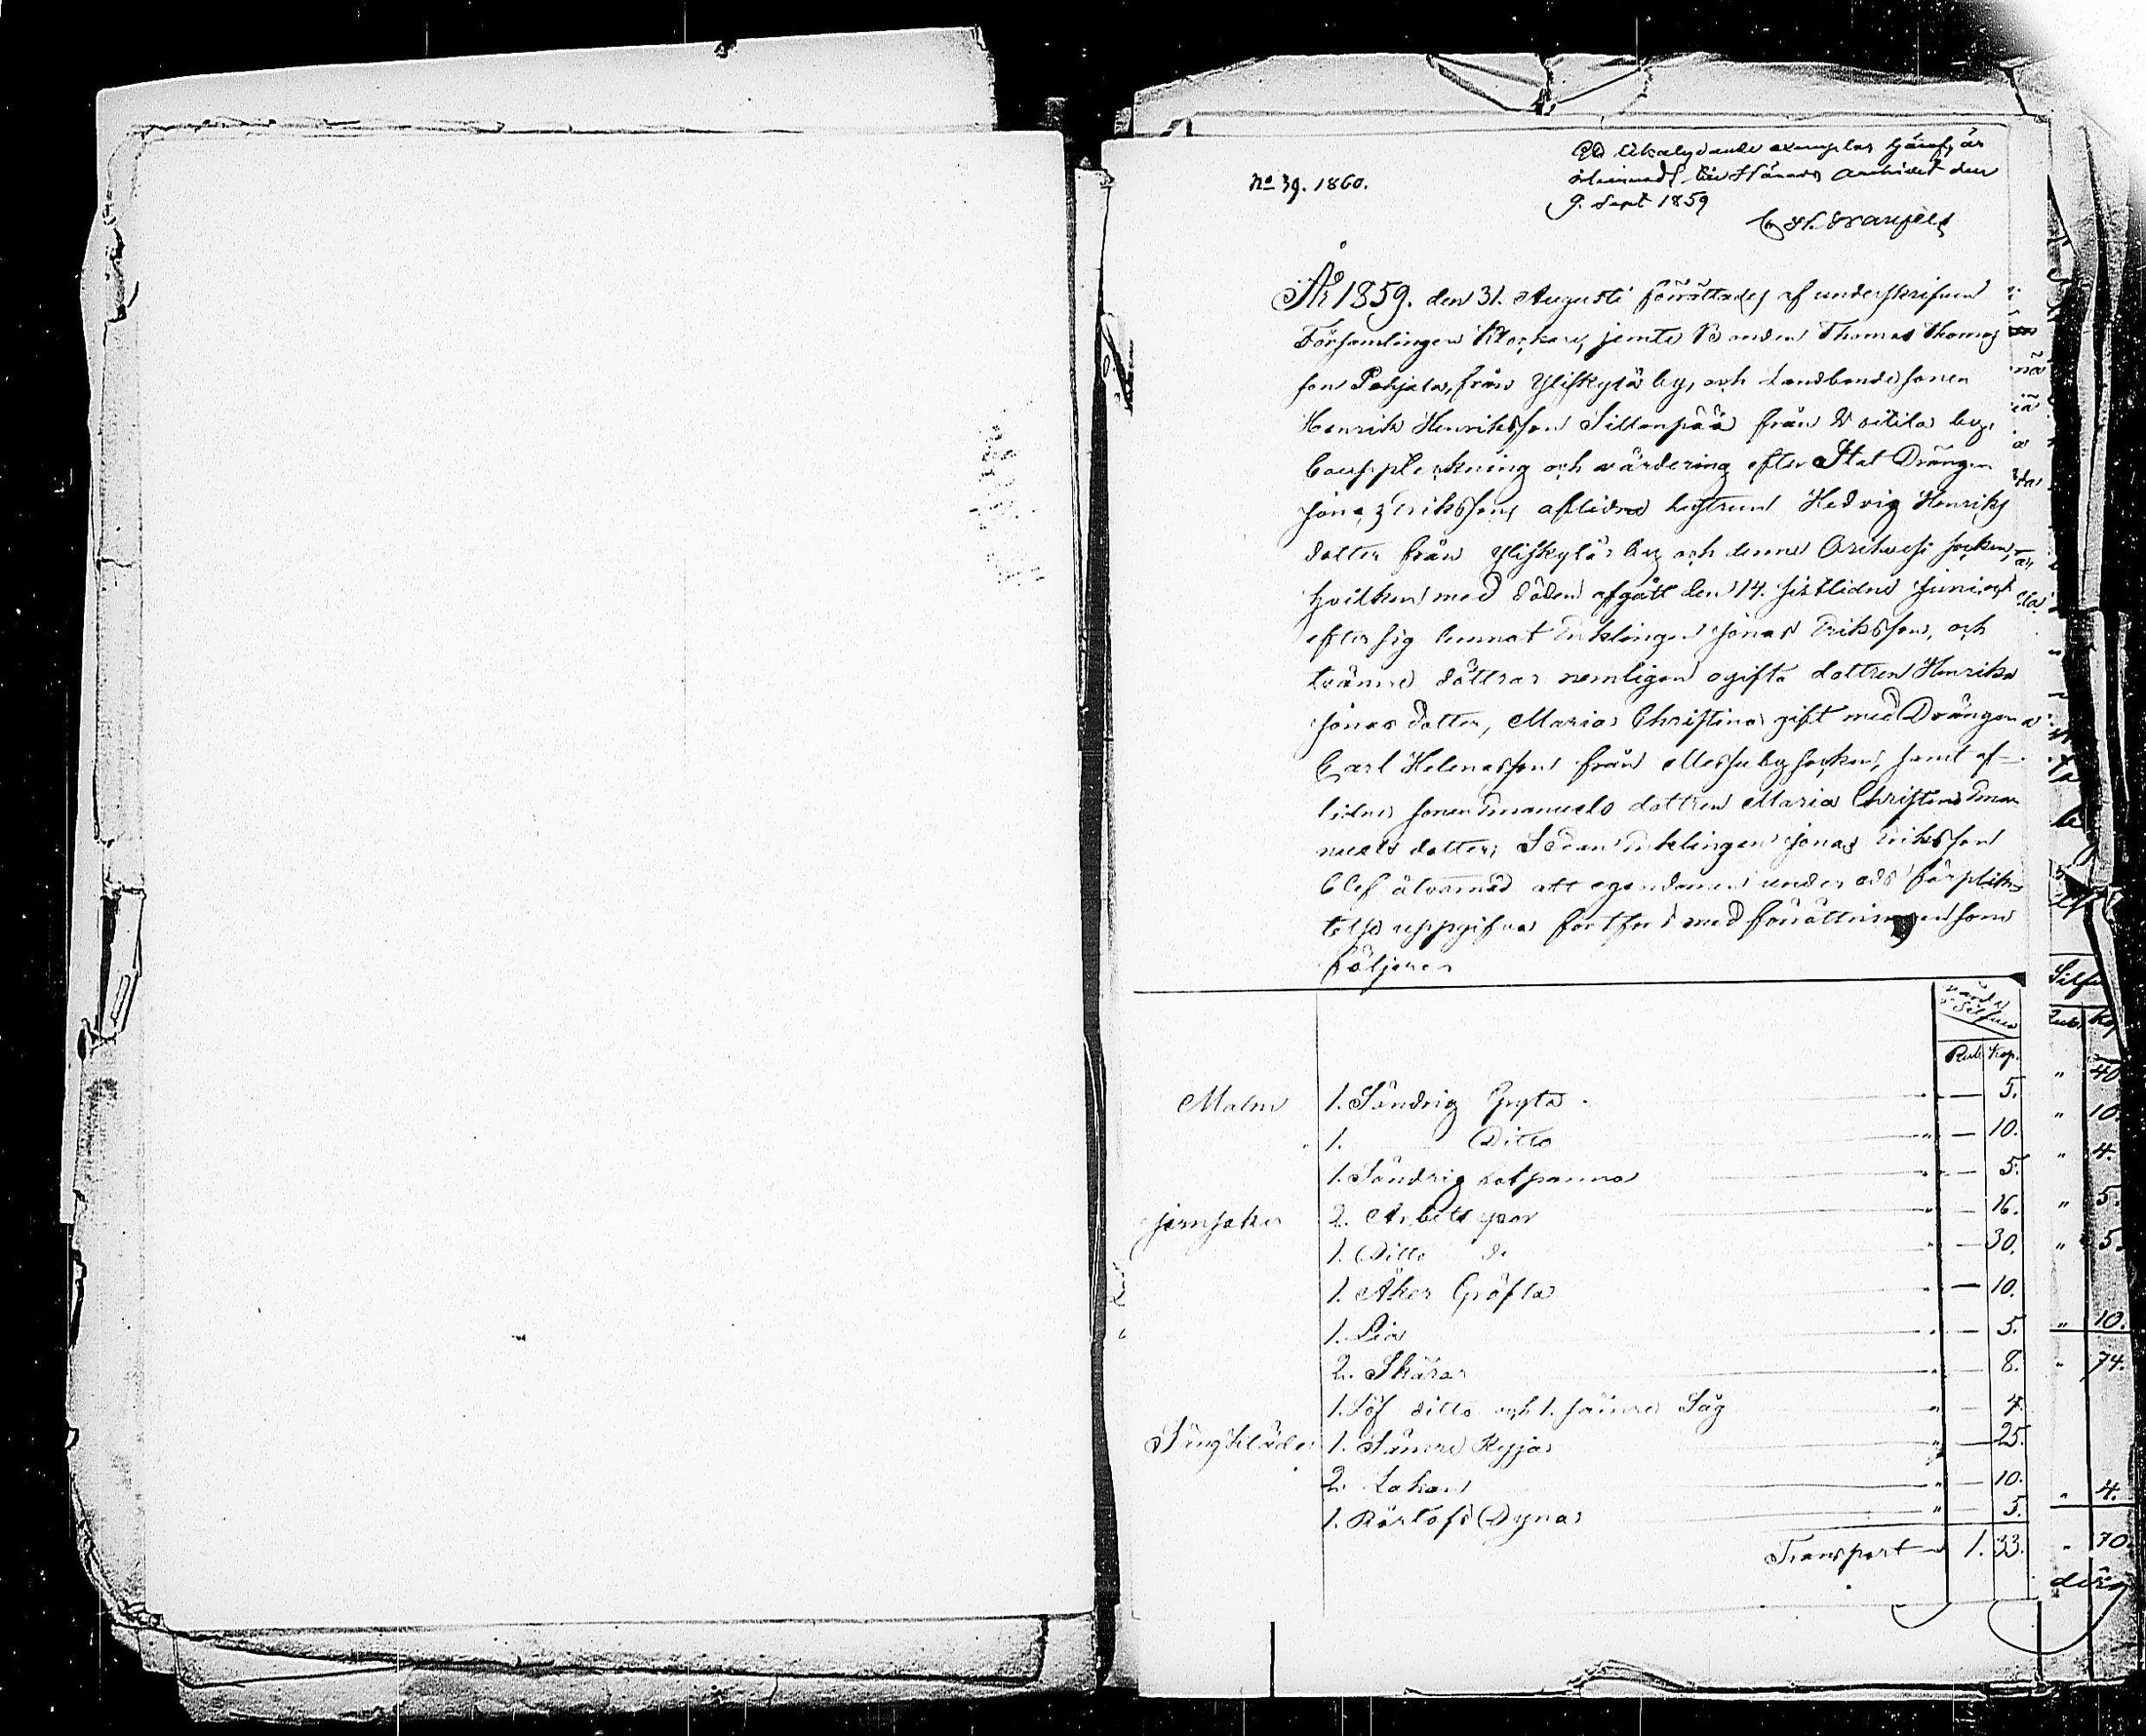 No 39. 1860.
Ett likalydande exemplar häraf är
inlemnadt till Härads archivet den
9. Sept 1859
År 1859. den 31. Augusti förrättades af underskrifven
Församlingens Klockare, jemte Bonden Thomas Thomas
son Pohjala, från Yliskylä by, och Landbondesonen
Henrik Henriksson Sillanpää från Voitila by,
bouppteckning och värdering efter Stat Drängen
Jonas Erikssons aflidna hustrun Hedvig Henriks
dotter från Yliskylä by och denne Orihvesi socken,
hvilken med döden afgått den 14. sistlidne Junii och
efter sig lemnat Enklingen Jonas Eriksson, och
tvänne döttrar nemligen ogifta dottren Henrika
Jonas dotter, Maria Christina gift med Drängen
Carl Helenasson från Messuby socken, samt af-
lidne sonen Emanuels dottren Maria Christina Ema
nuels dotter; Sedan Enklingen Jonas Eriksson
blef åtvarnad att egendomen under eds förplik
telse uppgifva fortfors med förrättningen som
följer
värde
i Silfver
Rub. Kop.
Malm 1. Söndrig Gryta " — 5.
1. Ditto " — 10.
1. Söndrig kolpanna " — 5.
Jernsaker 2. Arbets yxor " — 16.
1. Ditto do " — 30.
1. Åker Gräfta " — 10.
1. Lia " — 5.
2. Skäror " — 8.
1. Löf ditto och 1. sämre Såg " — 4.
Sängkläder 1. Sämre Ryja " — 25.
2. Lakan " — 10.
1. Dyna " — 5.
Transport 1. 33.
Silfv
Rub. Kop
" 40
" 10.
" 4.
" 5.
" 5.
" 10.
" 74.
" 4.
" 70.